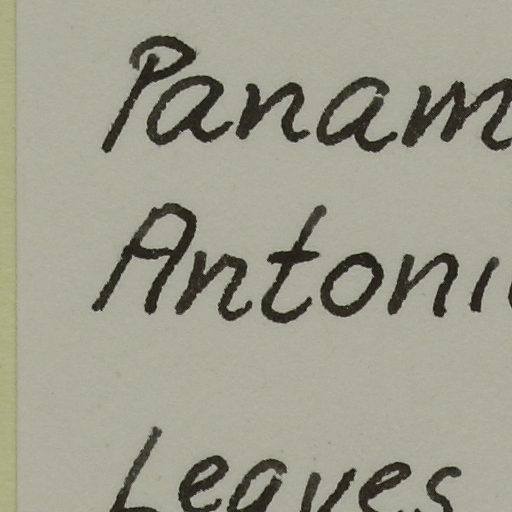 Panam
Antoni
Leaves